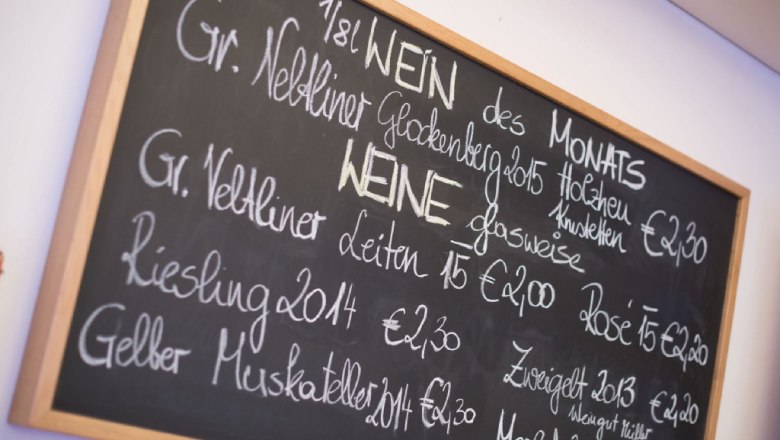 1/8l WEIN des MONATS
Gr. Veltliner Glockenberg 2015 Holzheu €2,30
Krustetten
WEINE glasweise
Gr. Veltliner Leiten 15 €2,00
Rosé 15 €2,20
Riesling 2014 €2,30
Zweigelt 2013 €2,20
Weingut Müller
Gelber Muskateller 2014 €2,30